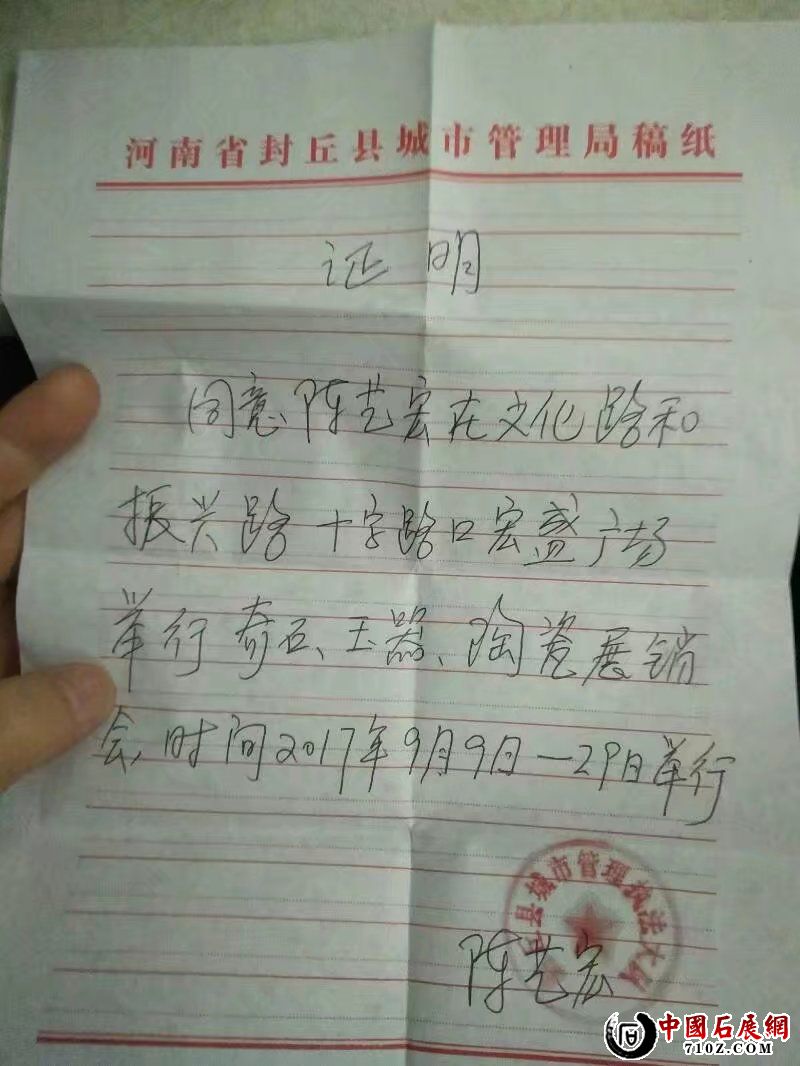 河南省封丘县城市管理局稿纸
证明
同意陈艺宏在文化路和
振兴路十字路口宏盛广场
举行奇石、玉器、陶瓷展销
会,时间2017年9月9日—29日举行
县城市管理执法大队
陈艺宏
中國石展網
710Z.COM